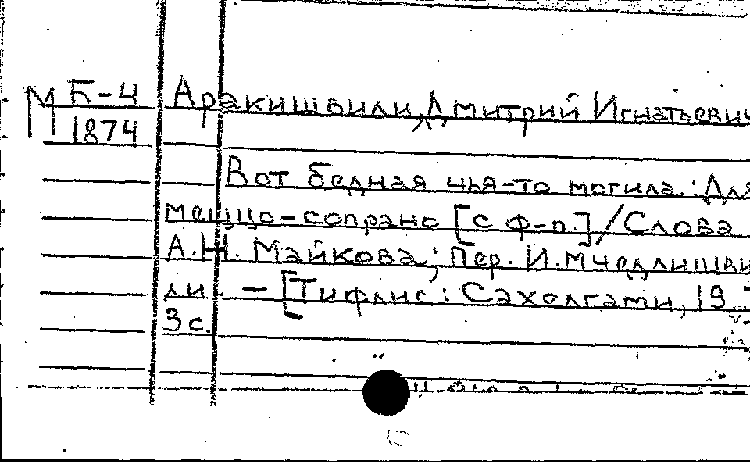 М Б-4 Аракишвили, Дмитрий Игнатьевич
1874
Вот бедная чья-то могила: Для
меццо-сопрано [с ф-п.] / Слова
А.Н. Майкова; Пер. И.Мчедлишви
ли - [Тифлис: Сахелгами, 19
3 с.